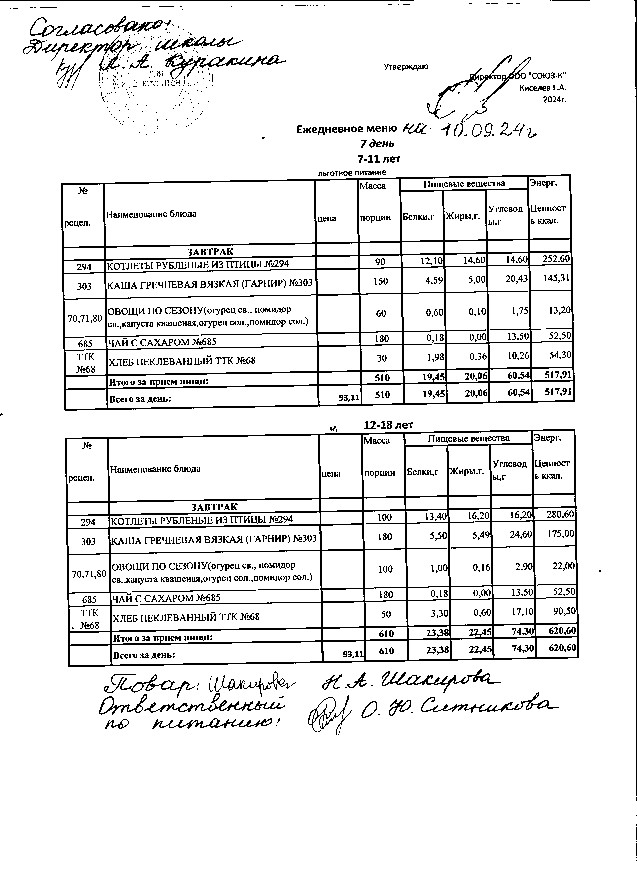 Согласовано:
Директор школы
Л. А. Куракина
Утверждаю
Директор ООО "СОЮЗ-К"
Киселев І.А.
2024г.
Ежедневное меню на 10.09.24г
7 день
7-11 лет
льготное питание
№ рецеп. Наименование блюда цена Масса порции Пищевые вещества Белки,г Жиры,г. Углевод ы,г Энерг. Ценност ь ккал.
ЗАВТРАК
294 КОТЛЕТЫ РУБЛЕНЫЕ ИЗ ПТИЦЫ №294 90 12,10 14,60 14,60 252,60
303 КАША ГРЕЧНЕВАЯ ВЯЗКАЯ (ГАРНИР) №303 150 4,59 5,00 20,43 145,31
70,71,80 ОВОЩИ ПО СЕЗОНУ(огурец св., помидор св.,капуста квашеная,огурец сол.,помидор сол.) 60 0,60 0,10 1,75 13,20
685 ЧАЙ С САХАРОМ №685 180 0,18 0,00 13,50 52,50
ТТК №68 ХЛЕБ ПЕКЛЕВАННЫЙ ТТК №68 30 1,98 0,36 10,26 54,30
Итого за прием пищи: 510 19,45 20,06 60,54 517,91
Всего за день: 93,11 510 19,45 20,06 60,54 517,91
12-18 лет
№ рецеп. Наименование блюда цена Масса порции Пищевые вещества Белки,г Жиры,г. Углевод ы,г Энерг. Ценност ь ккал.
ЗАВТРАК
294 КОТЛЕТЫ РУБЛЕНЫЕ ИЗ ПТИЦЫ №294 100 13,40 16,20 16,20 280,60
303 КАША ГРЕЧНЕВАЯ ВЯЗКАЯ (ГАРНИР) №303 180 5,50 5,49 24,60 175,00
70,71,80 ОВОЩИ ПО СЕЗОНУ(огурец св., помидор св.,капуста квашеная,огурец сол.,помидор сол.) 100 1,00 0,16 2,90 22,00
685 ЧАЙ С САХАРОМ №685 180 0,18 0,00 13,50 52,50
ТТК №68 ХЛЕБ ПЕКЛЕВАННЫЙ ТТК №68 50 3,30 0,60 17,10 90,50
Итого за прием пищи: 610 23,38 22,45 74,30 620,60
Всего за день: 93,11 610 23,38 22,45 74,30 620,60
Повар: Шакирова Н. А. Шакирова
Ответственный
по питанию: О. Ю. Ситникова